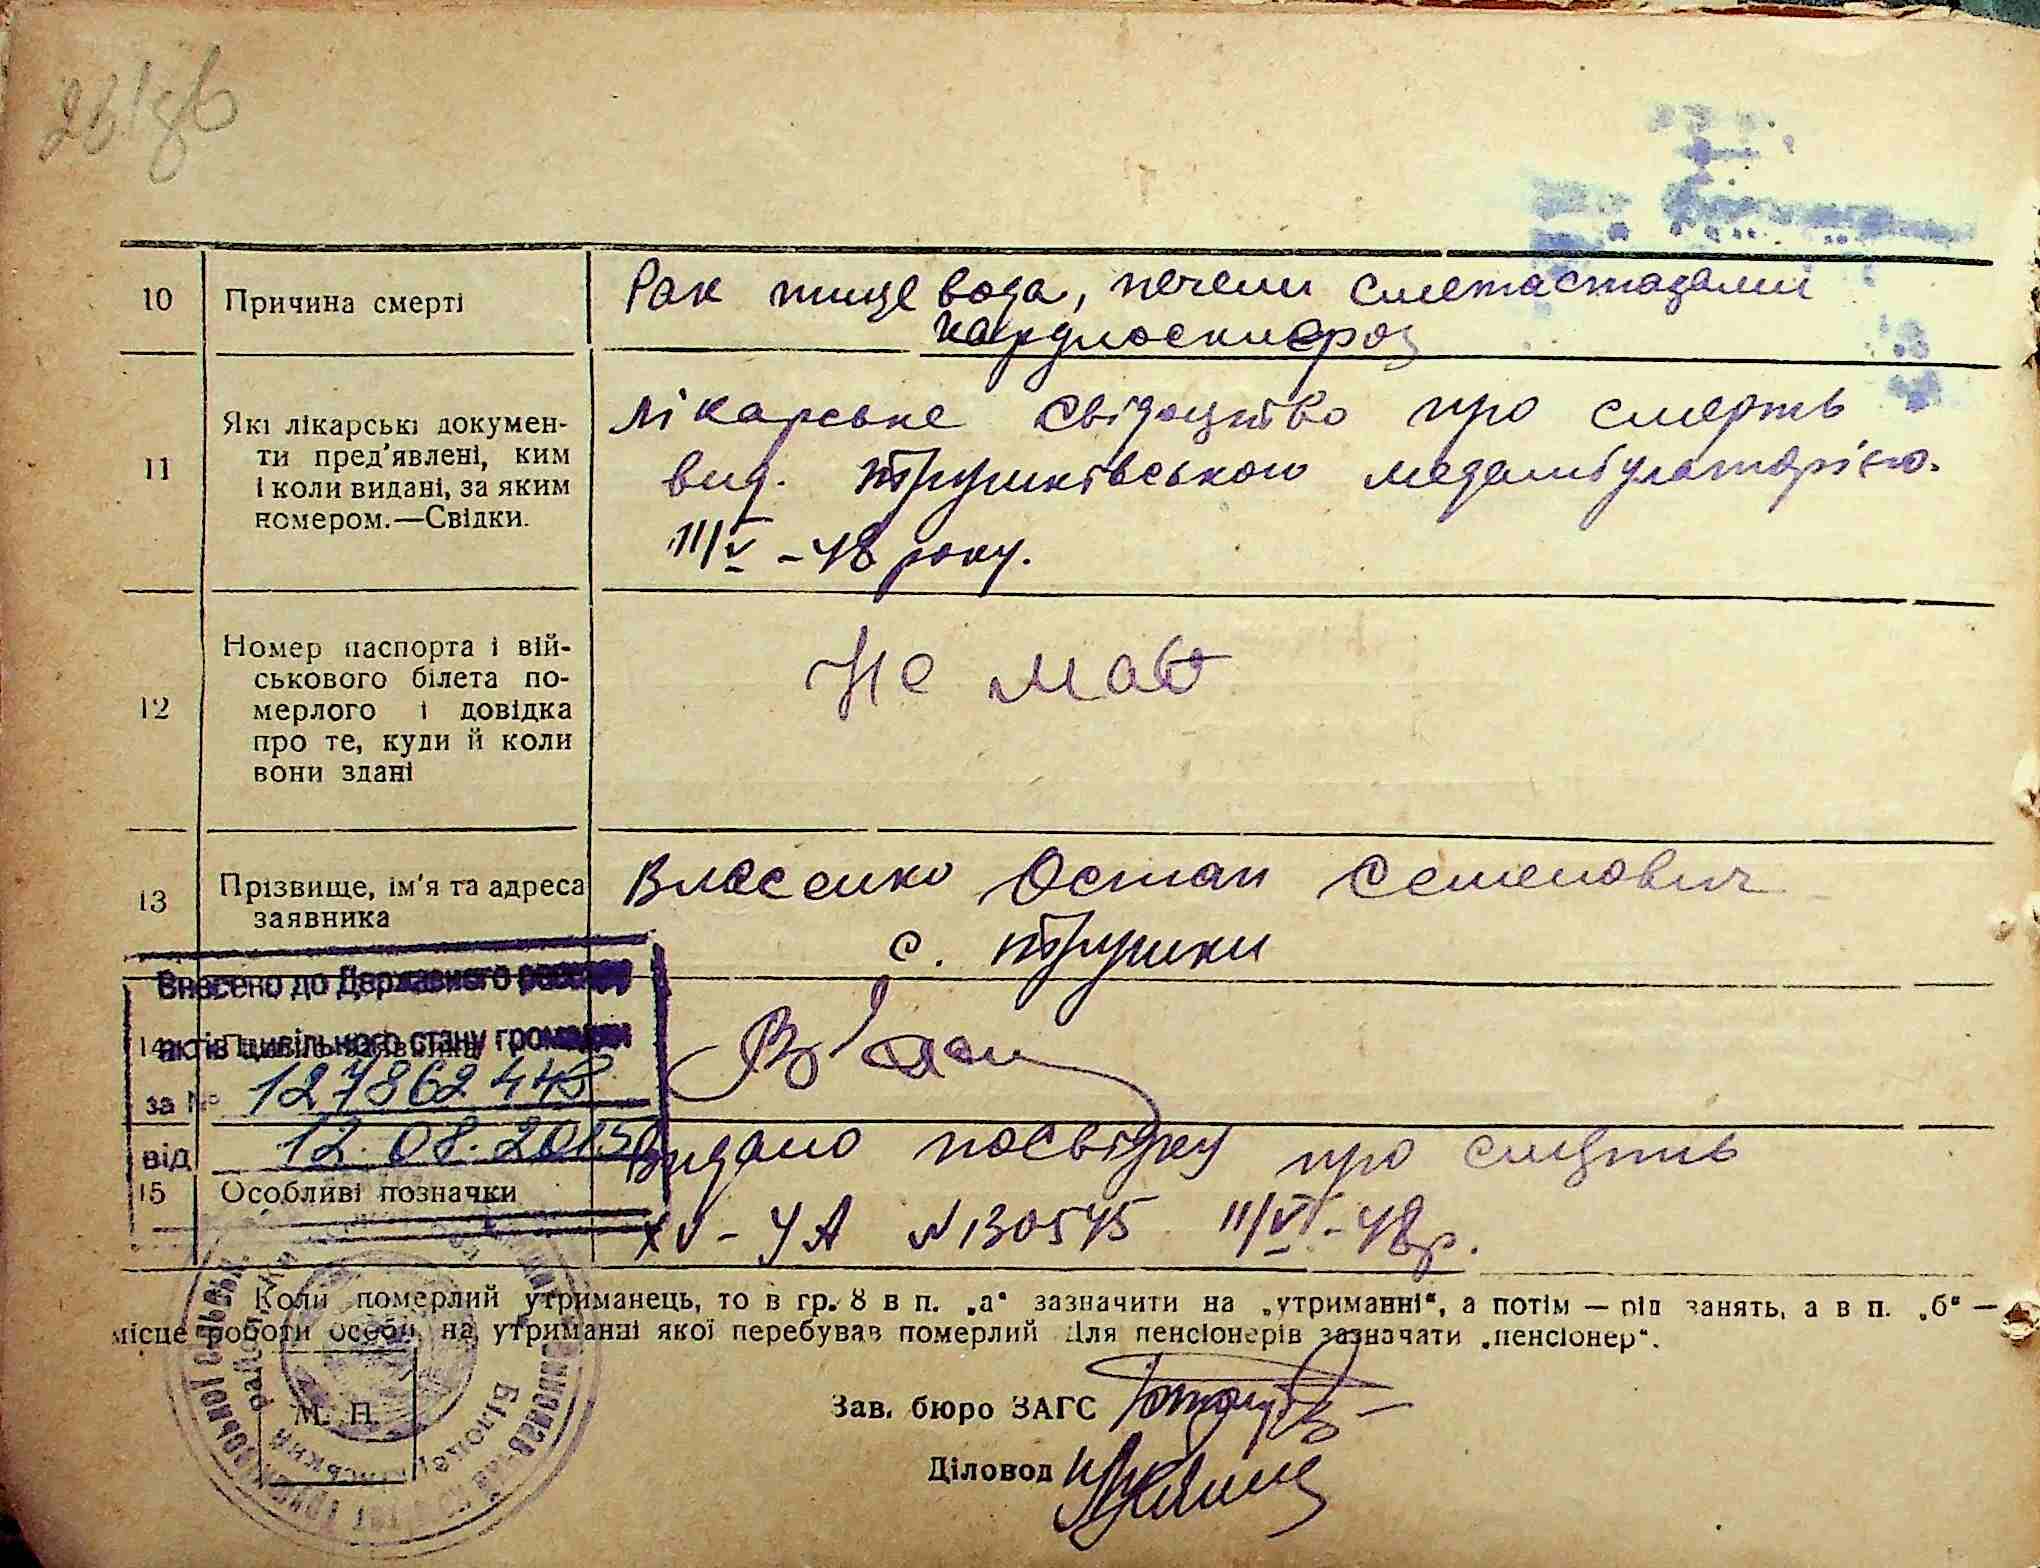 10 Причина смерті
Рак пищевода, печени сметастазами
кардиосклероз
11 Які лікарські докумен-
ти пред'явлені, ким
і коли видані, за яким
номером.—Свідки.
Лікарське свідоцтво про смерть
вид. Трушківською медамбулаторією.
11/V – 48 року.
12 Номер паспорта і вій-
ськового білета по-
мерлого і довідка
про те, куди й коли
вони здані
Не має
13 Прізвище, ім'я та адреса
заявника
Власенко Остап Семенович
с. Трушки
Внесено до Державного реєстру
актів цивільного стану громадян
14
за №
від 12.08.2015
15 Особливі позначки
Видано посвідку про смерть
XV – УА №130545 11/VI – 48р.
Коли померлий утриманець, то в гр. 8 в п. „а“ зазначити на „утриманні“, а потім — рід занять, а в п. „б“ —
місце роботи особи, на утриманні якої перебував померлий Для пенсіонерів зазначати „пенсіонер“.
М. П.
Зав. бюро ЗАГС
Діловод